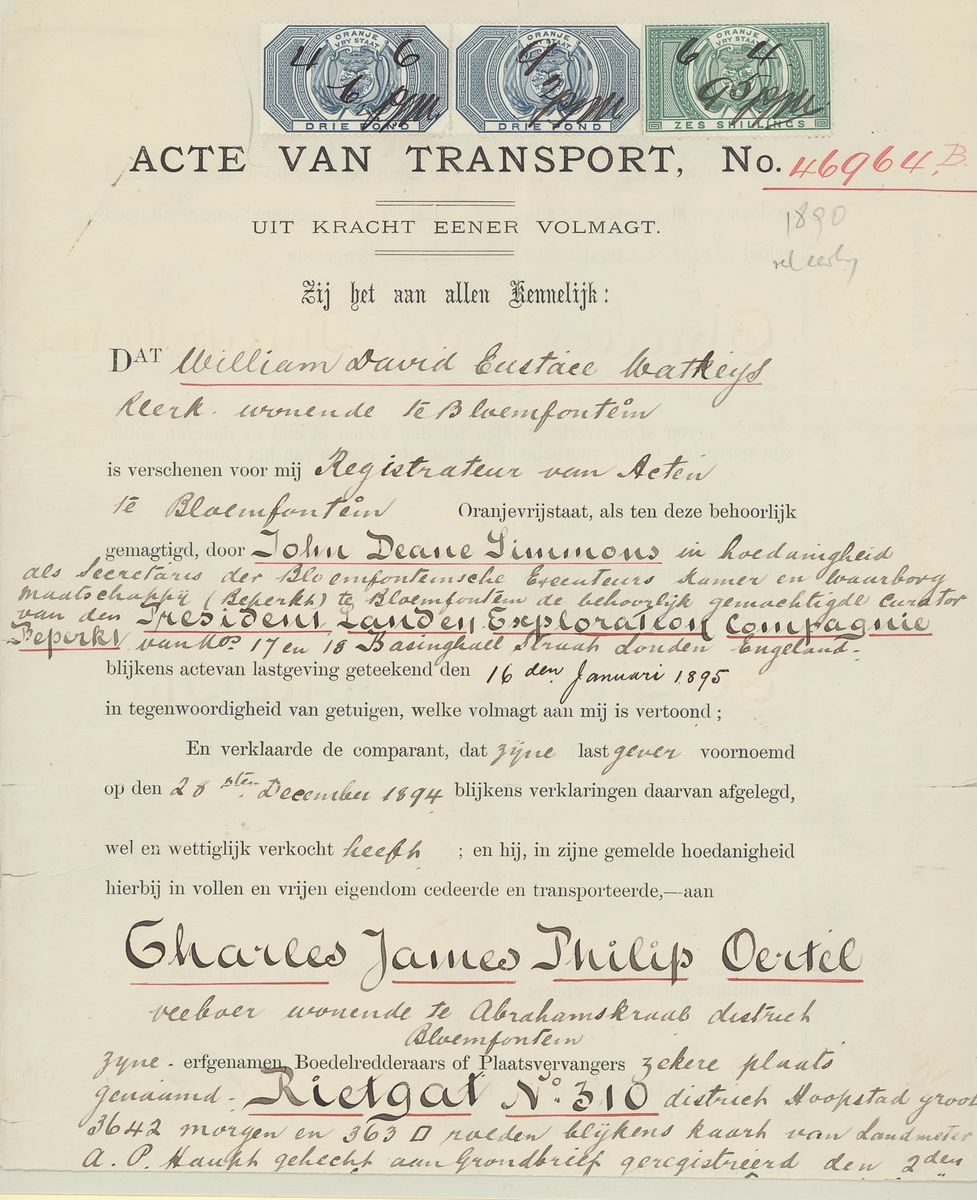 ORANJE VRY STAAT
DRIE POND
ORANJE VRY STAAT
DRIE POND
ORANJE VRY STAAT
ZES SHILLINGS
ACTE VAN TRANSPORT, No. 46964.B.
UIT KRACHT EENER VOLMAGT.
1890
Zij het aan allen Kennelijk:
DAT William David Eustace Watkeys
Klerk. wonende te Bloemfontein
is verschenen voor mij Registrateur van Acten
te Bloemfontein Oranjevrijstaat, als ten deze behoorlijk
gemagtigd, door John Deane Simmons in hoedanigheid
als Secretaris der Bloemfonteinsche Executeurs Kamer en Waarborg
Maatschappij (Beperkt) te Bloemfontein de behoorlijk gemachtigde Curator
van den President Landen Exploration Compagnie
Beperkt van Nos. 17 en 18 Basinghall Straat Londen Engeland.
blijkens acte van lastgeving geteekend den 16 den Januari 1895
in tegenwoordigheid van getuigen, welke volmagt aan mij is vertoond;
En verklaarde de comparant, dat zyne lastgever voornoemd
op den 28sten December 1894 blijkens verklaringen daarvan afgelegd,
wel en wettiglijk verkocht heeft ; en hij, in zijne gemelde hoedanigheid
hierbij in vollen en vrijen eigendom cedeerde en transporteerde,—aan
Charles James Philip Oertel
veeboer wonende te Abrahamskraal district
Bloemfontein
zyne - erfgenamen, Boedelredderaars of Plaatsvervangers zekere plaats
genaamd - Rietgat No. 310 district Hoopstad groot
3642 morgen en 363 □ roeden blijkens kaart van Landmeter
A. P. Haupt gehecht aan Grondbrief geregistreerd den 2den